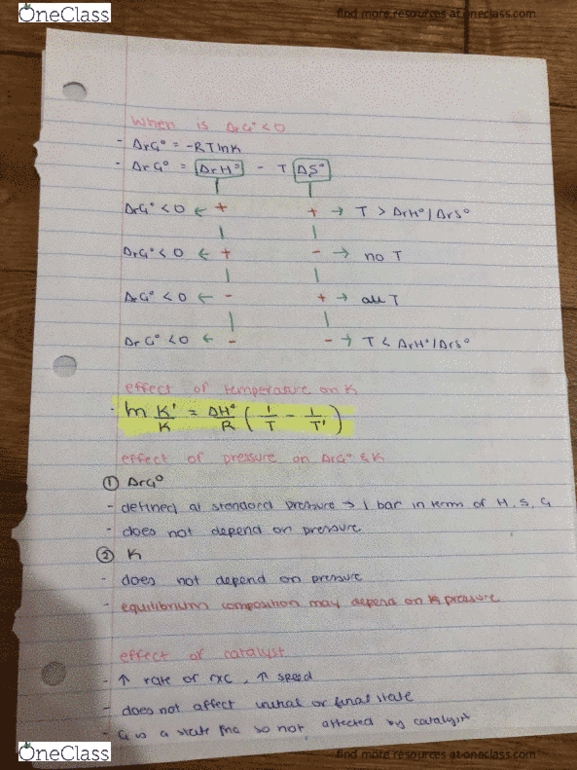 OneClass
find more resources at oneclass.com
When is ΔrG° < 0
- ΔrG° = -RTlnK
- ΔrG° = ΔrH° - T ΔS°
ΔrG° < 0 ← + + → T > ΔrH°/ΔrS°
ΔrG° < 0 ← + - → no T
ΔrG° < 0 ← - + → all T
ΔrG° < 0 ← - - → T < ΔrH°/ΔrS°
effect of temperature on K
- ln K'/K = ΔH°/R (1/T - 1/T')
effect of pressure on ΔrG° & K
① ΔrG°
- defined at standard pressure → 1 bar in term of H, S, G
- does not depend on pressure
② K
- does not depend on pressure
- equilibrium composition may depend on pressure
effect of catalyst
- ↑ rate of rxc, ↑ speed
- does not affect initial or final state
- G is a state fnc so not affected by catalyst
OneClass
find more resources at oneclass.com